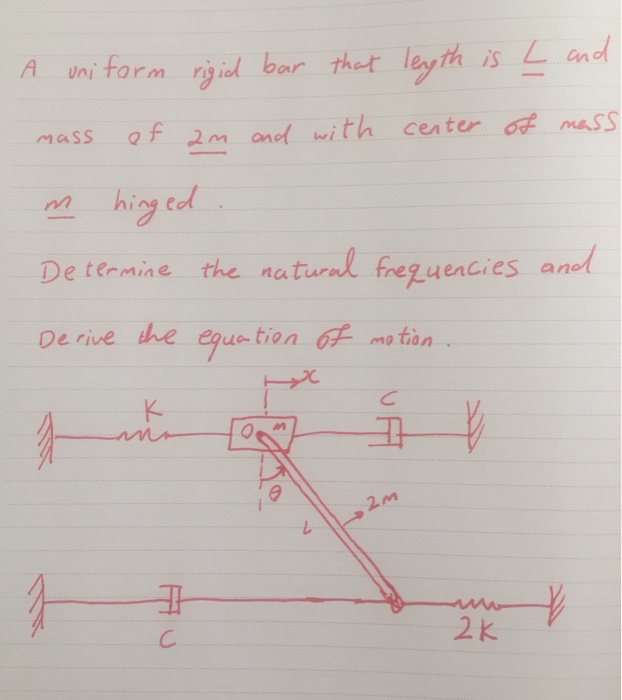 A uniform rigid bar that length is L and
mass of 2m and with center of mass
m hinged.
Determine the natural frequencies and
Derive the equation of motion.
x
K
C
O m
θ
2m
L
C
2K